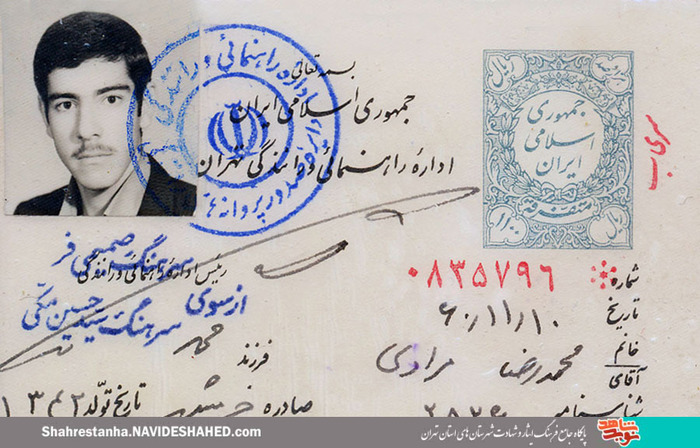 بسمه تعالی
جمهوری اسلامی ایران
اداره راهنمائی و رانندگی تهران
جمهوری
اسلامی
ایران
متفرقه
ریال
اداره راهنمائی و رانندگی
صدور پروانه
سرهنگ صمیمی فر
رئیس اداره راهنمائی و رانندگی
از سوی
سرهنگ سید حسین مکی
شماره ۰۸۳۵۷۹۶
تاریخ ۶۰/۱۱/۱۰
خانم
آقای محمدرضا مرادی
فرزند
شناسنامه
صادره
تاریخ تولد
Shahrestanha.NAVIDESHAHED.com
پایگاه جامع فرهنگ ایثار و شهادت شهرستان های استان تهران
نوید شاهد